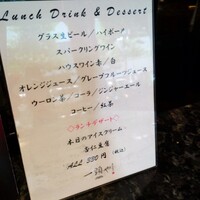 Lunch Drink & Dessert
グラス生ビール／ハイボール
スパークリングワイン
ハウスワイン赤／白
オレンジジュース／グレープフルーツジュース
ウーロン茶／コーラ／ジンジャーエール
コーヒー／紅茶
◇ランチデザート◇
本日のアイスクリーム
杏仁豆腐
ALL 330円 (税込)